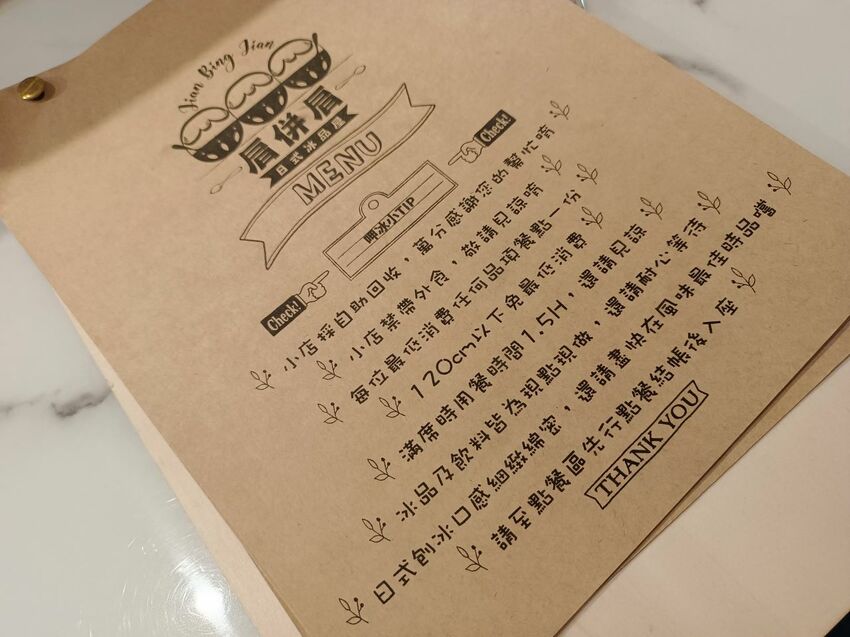 Jian Bing Jian
肩併肩
日式冰品屋
MENU
Check!
呷冰小TIP
Check!
小店採自助回收，萬分感謝您的幫忙唷
小店禁帶外食，敬請見諒唷
每位最低消費任何品項餐點一份
120cm以下免最低消費
滿席時用餐時間1.5H，還請見諒
冰品及飲料皆為現點現做，還請耐心等待
日式刨冰口感細緻綿密，還請盡快在風味最佳時品嚐
請至點餐區先行點餐結帳後入座
THANK YOU